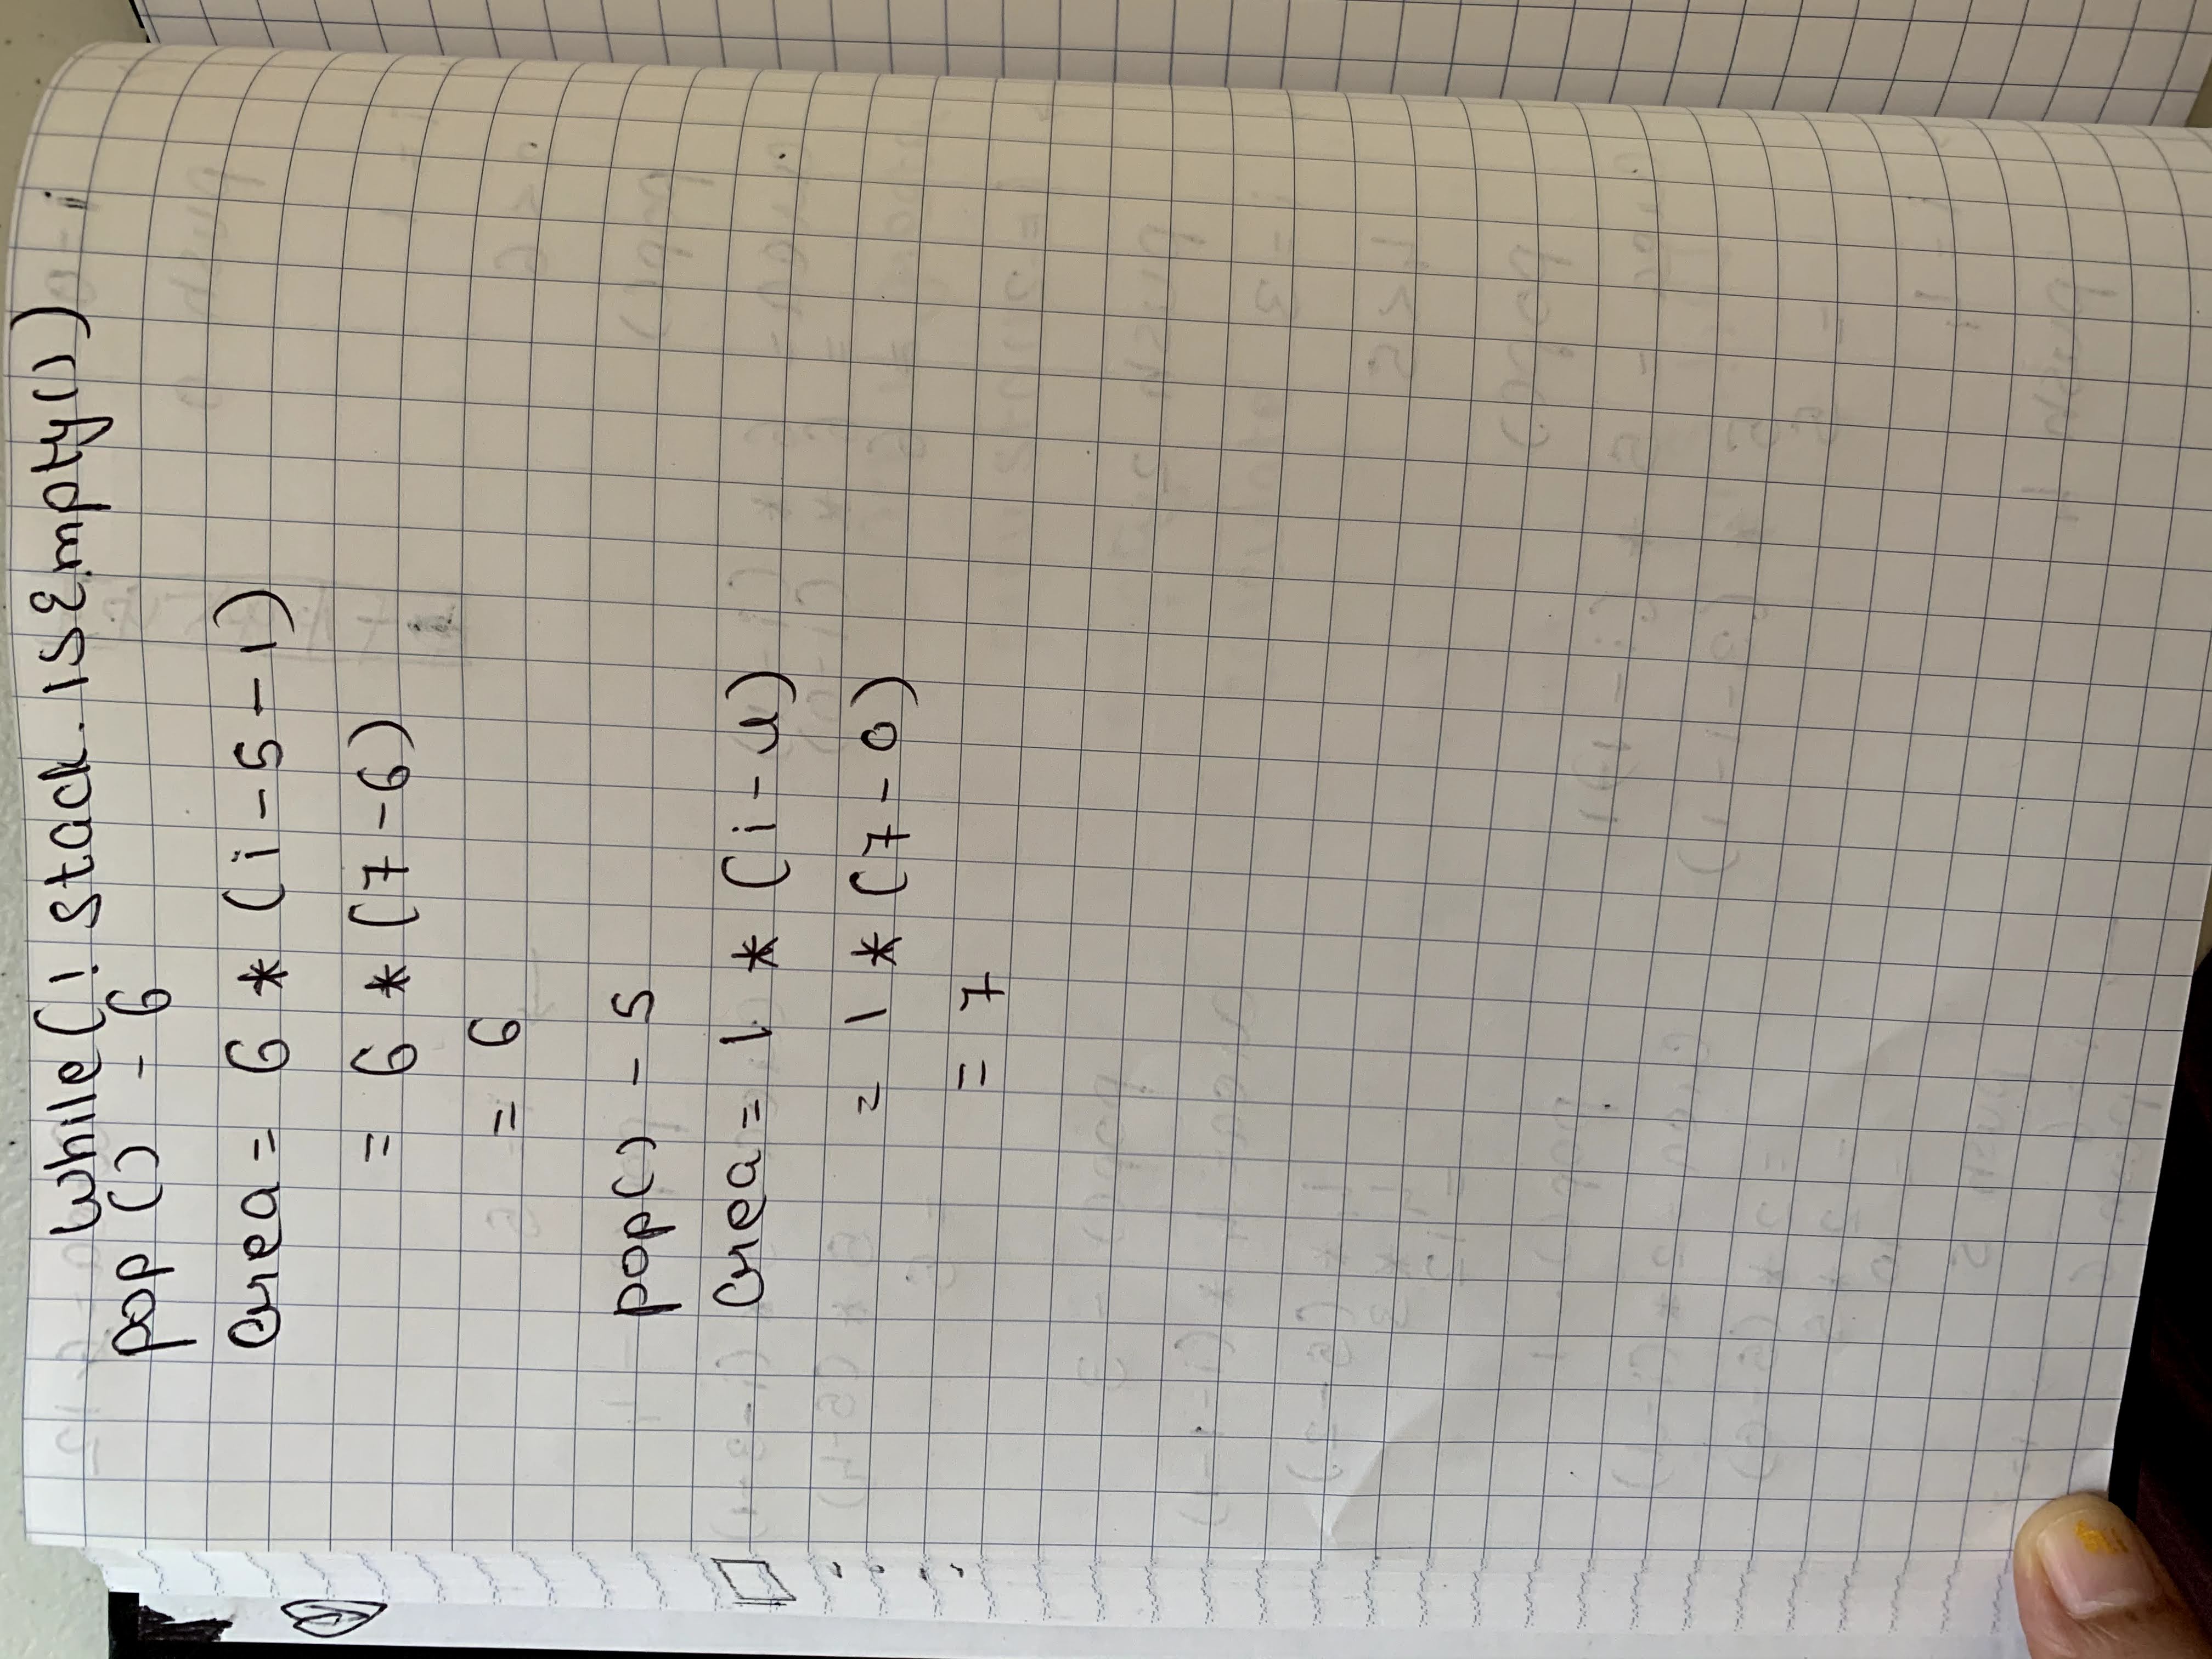 While(! Stack. ISEmpty())
pop () - 6
area = 6 * (i - 5 - 1)
= 6 * (7 - 6)
= 6
pop() - 5
area = 1 * (i - u)
= 1 * (7 - 0)
= 7